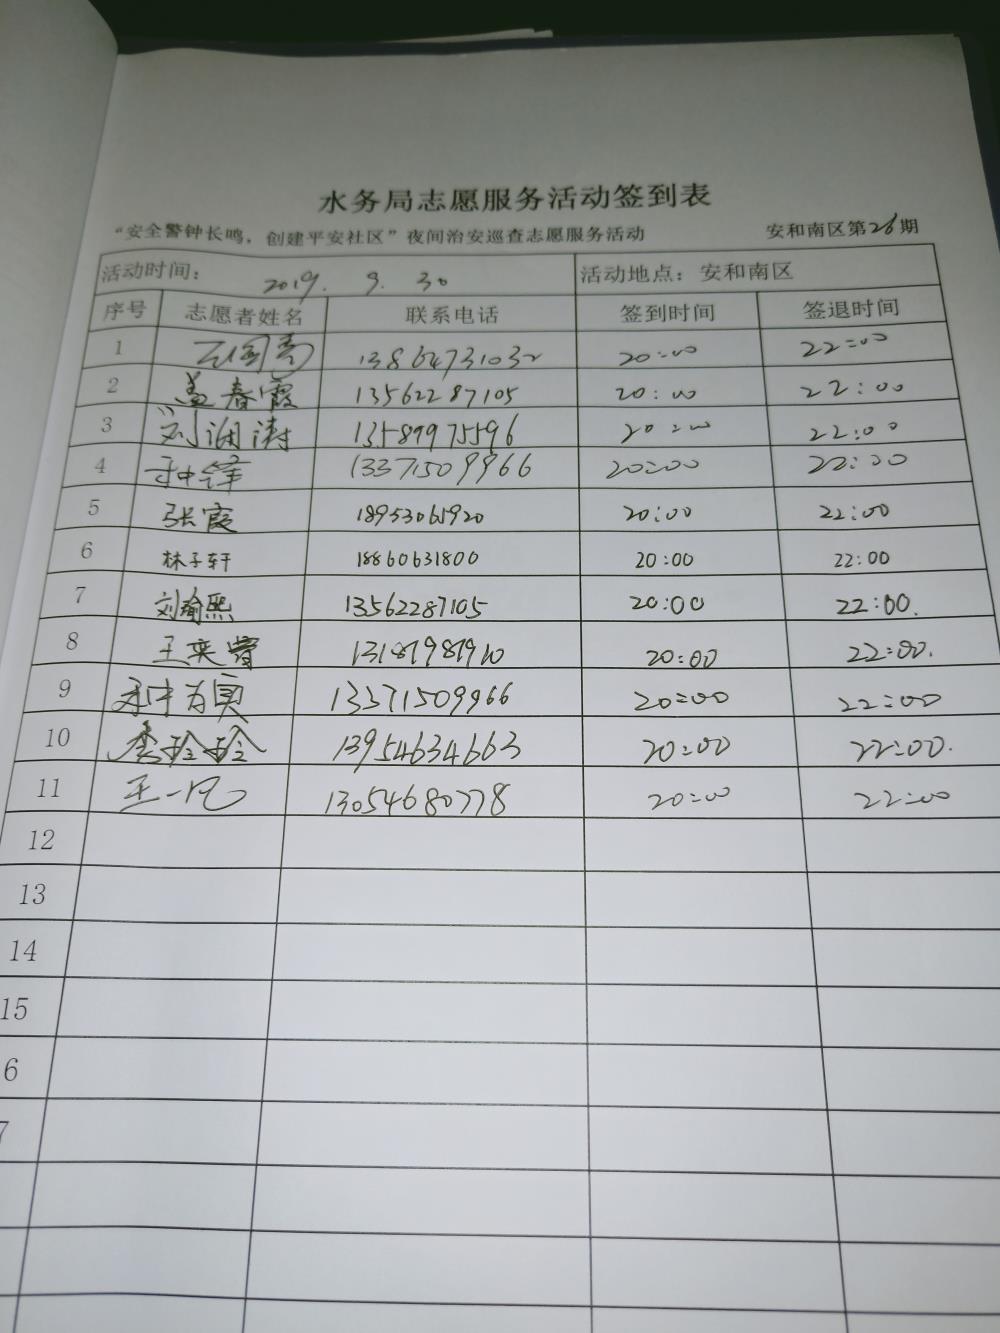 水务局志愿服务活动签到表
“安全警钟长鸣，创建平安社区”夜间治安巡查志愿服务活动 安和南区第26期
活动时间： 2019. 9. 30 活动地点：安和南区
序号 志愿者姓名 联系电话 签到时间 签退时间
1 13864731032 20:00 22:00
2 孟春霞 13562287105 20:00 22:00
3 刘润涛 13589975596 20:00 22:00
4 13371509966 20:00 22:00
5 张霞 18953065920 20:00 22:00
6 林子轩 18860631800 20:00 22:00
7 刘瑜熙 13562287105 20:00 22:00.
8 王奕 13181981910 20:00 22:00.
9 13371509966 20:00 22:00
10 李珍珍 13954634663 20:00 22:00.
11 王一凡 13054680778 20:00 22:00
12
13
14
15
6
7